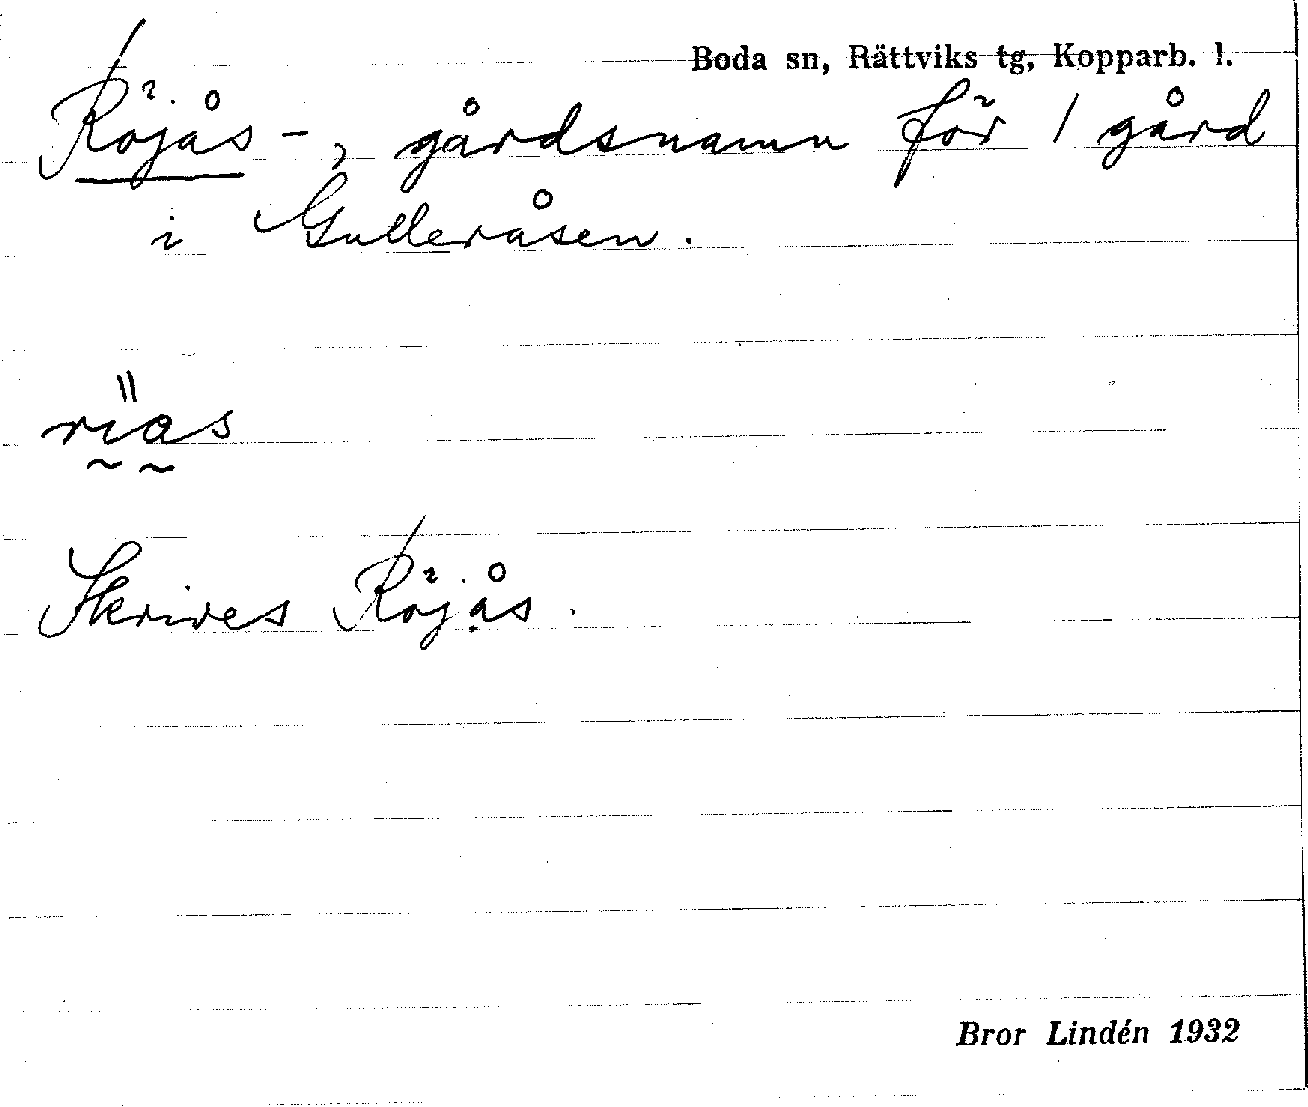 Boda sn, Rättviks tg, Kopparb. l.
Röjås-, gårdsnamn för 1 gård
i Gulleråsen.
rias
Skrives Röjås.
Bror Lindén 1932